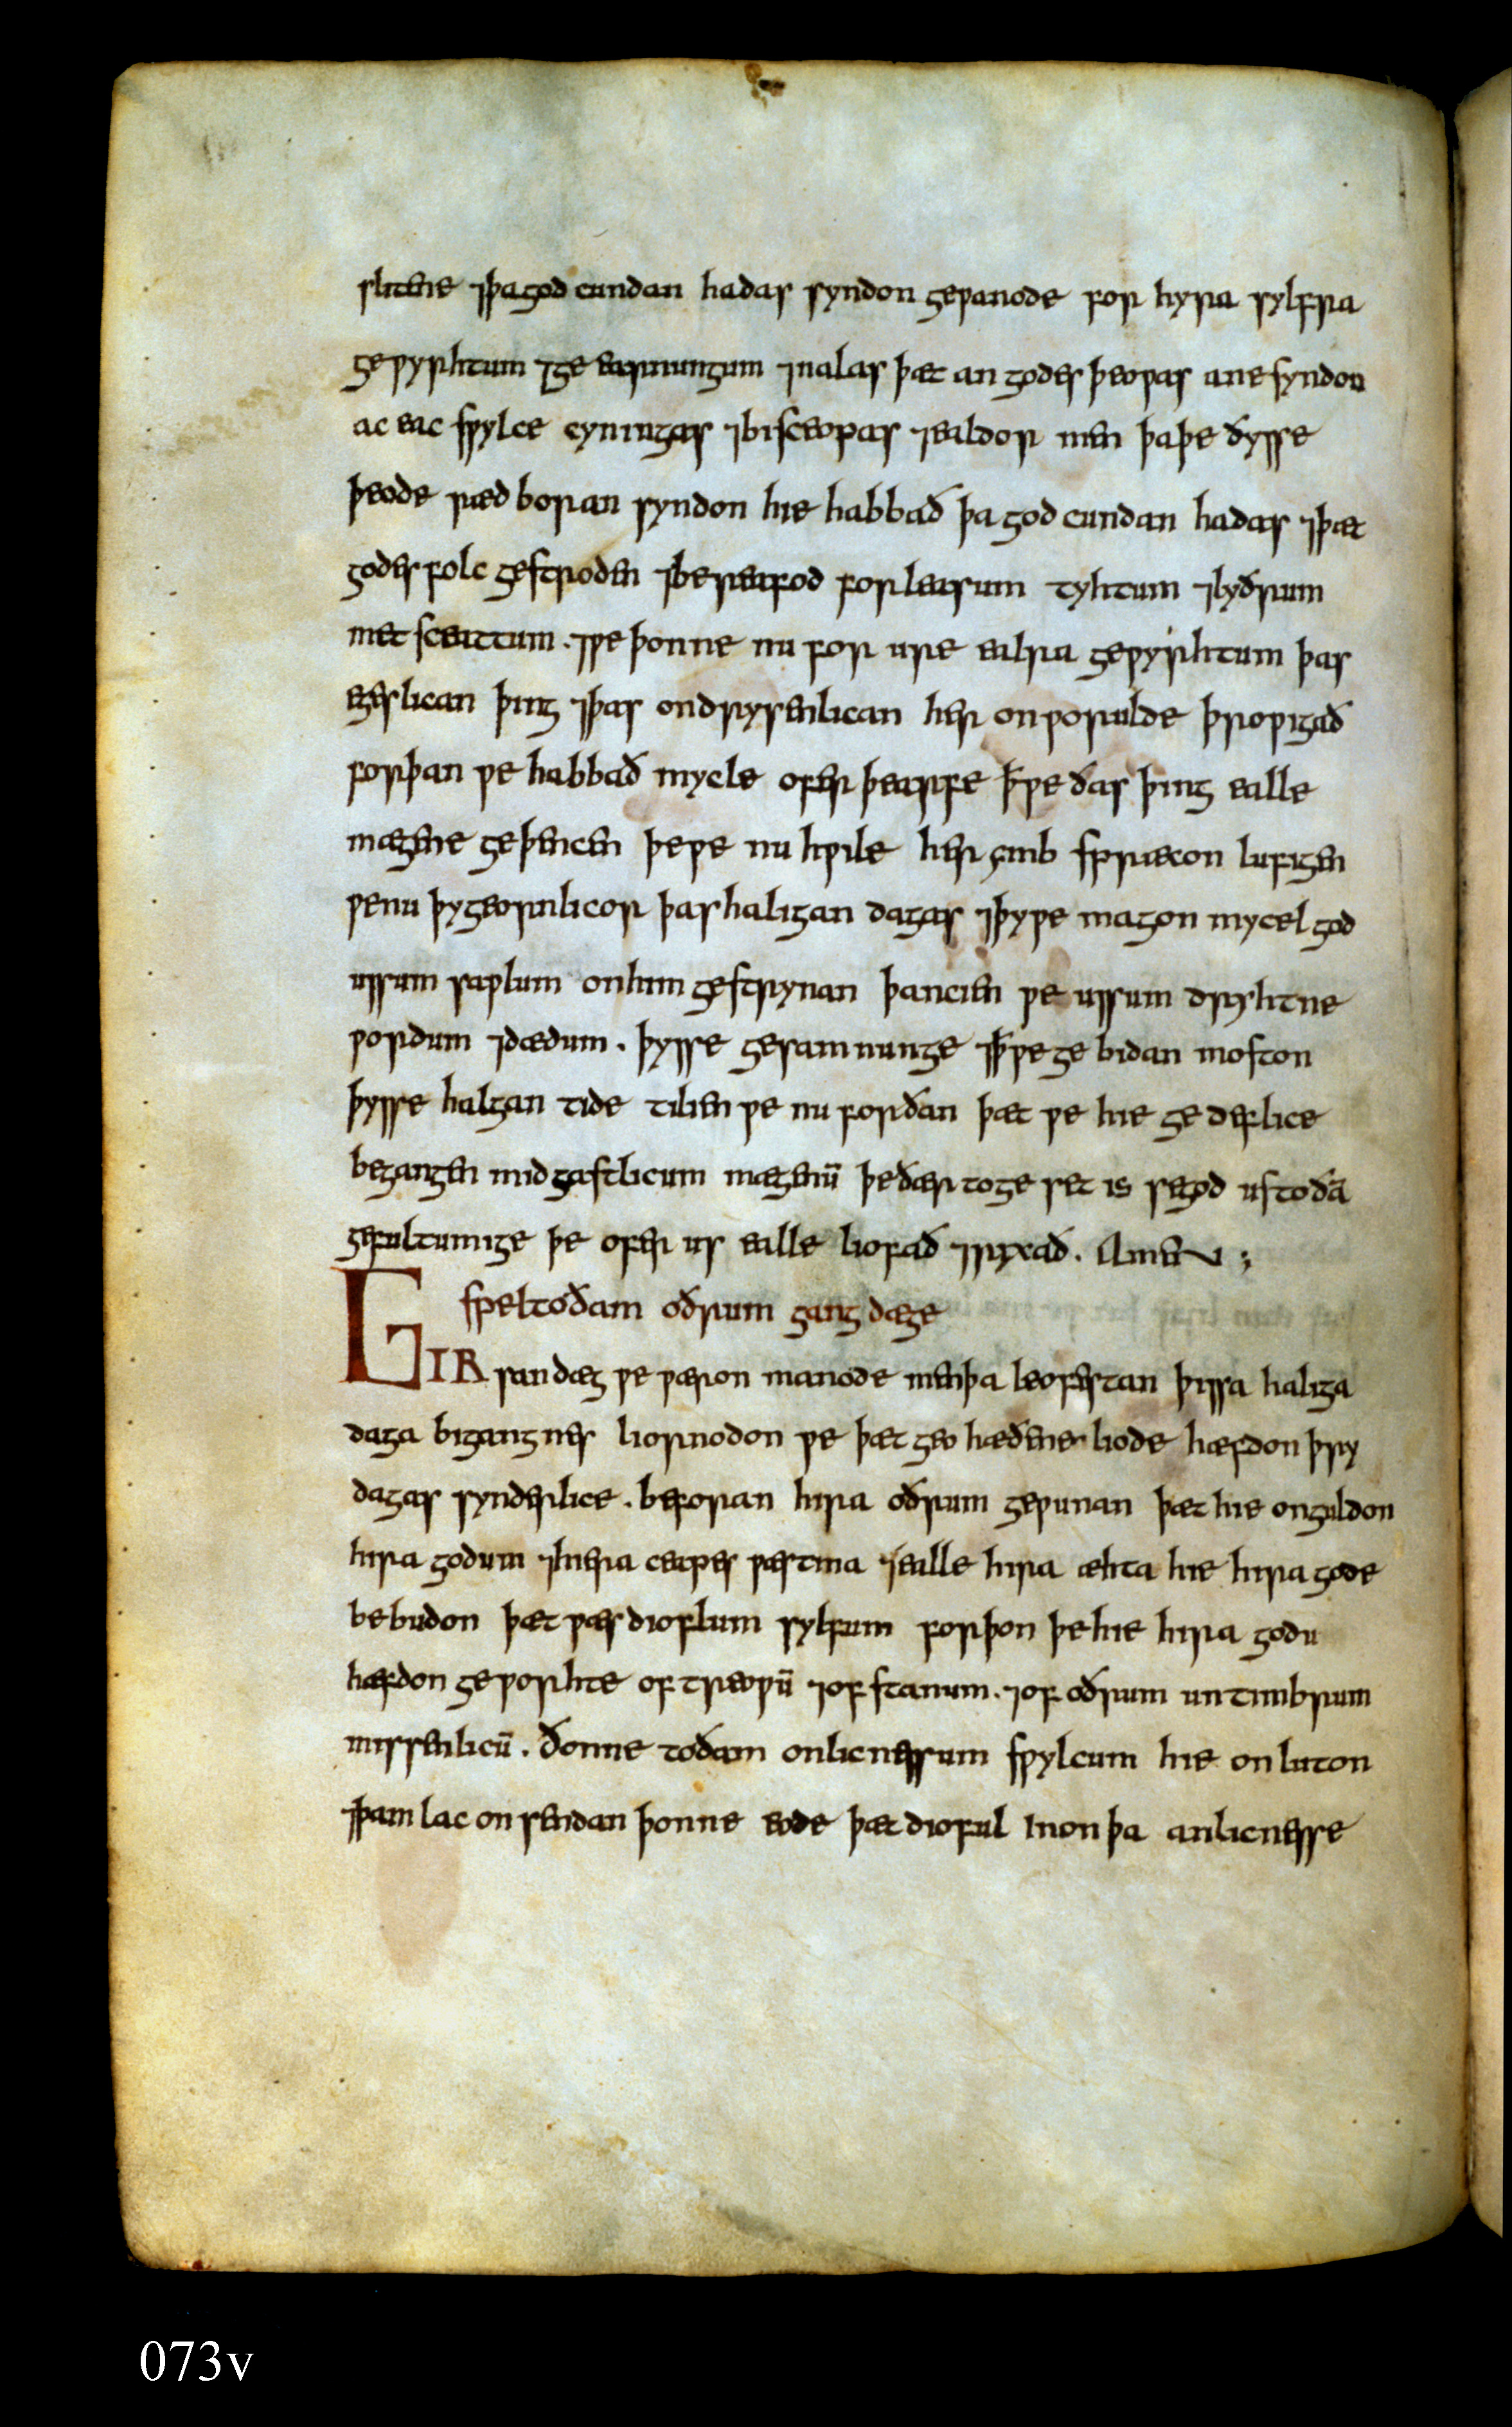 slitene ⁊þa god cundan hadas syndon geƿanode for hyra sylfra
geƿyrhtum ⁊ge earnungum ⁊nalas þæt an godes þeoƿas ane syndon
ac eac sƿylce cyningas ⁊bisceopas ⁊ealdor men þaþe ðysse
þeode ræd boran syndon hie habbað þa god cundan hadas ⁊þæt
godes folc gestroden ⁊bereafod for leasum tyhtum ⁊lyðrum
met sceattum . ⁊ƿe þonne nu for ure ealra geƿyrhtum þas
egeslican þing ⁊þas ondrysenlican her on ƿorulde þroƿigað
forþan ƿe habbað mycle ofer þearfe ꝥ ƿe ðas þing ealle
mægene geþencen þe ƿe nu hƿile her ymb sprǣcon lufigen
ƿe nu þy geornlicor þas haligan dagas ⁊þy ƿe magon mycel god
ussum saƿlum on him gestrynan þancien ƿe ussum dryhtne
ƿordum ⁊dædum . þysse gesamnunge ⁊ꝥ ƿe ge bidan moston
þysse halgan tide tilien ƿe nu forðan þæt ƿe hie ge deflice
begangen mid gastlicum mægenū þe ðær to ge set is se god us to ðā
gefultumige þe ofer us ealle liofað ⁊rixað . Amen ;
spel to ðam oðrum gang dæge
GIRsan dæg ƿe ƿæron manode men þa leofestan þissa haliga
daga bigangnes liornodon ƿe þæt geo hæðene liode hæfdon þry
dagas synderlice . beforan hira oðrum geƿunan þæt hie onguldon
hira godum ⁊hiera ceapes ƿæstma ⁊ealle hira æhta hie hira gode
bebudon þæt ƿæs dioflum sylfum forþon þe hie hira godu
hæfdon geƿorhte of treoƿū ⁊of stanum . ⁊of oðrum untimbrum
missenlicū . ðonne to ðam onlicnessum sƿylcum hie onluton
⁊þam lac onsendan þonne eode þæt dioful In on þa anlicnesse
073v